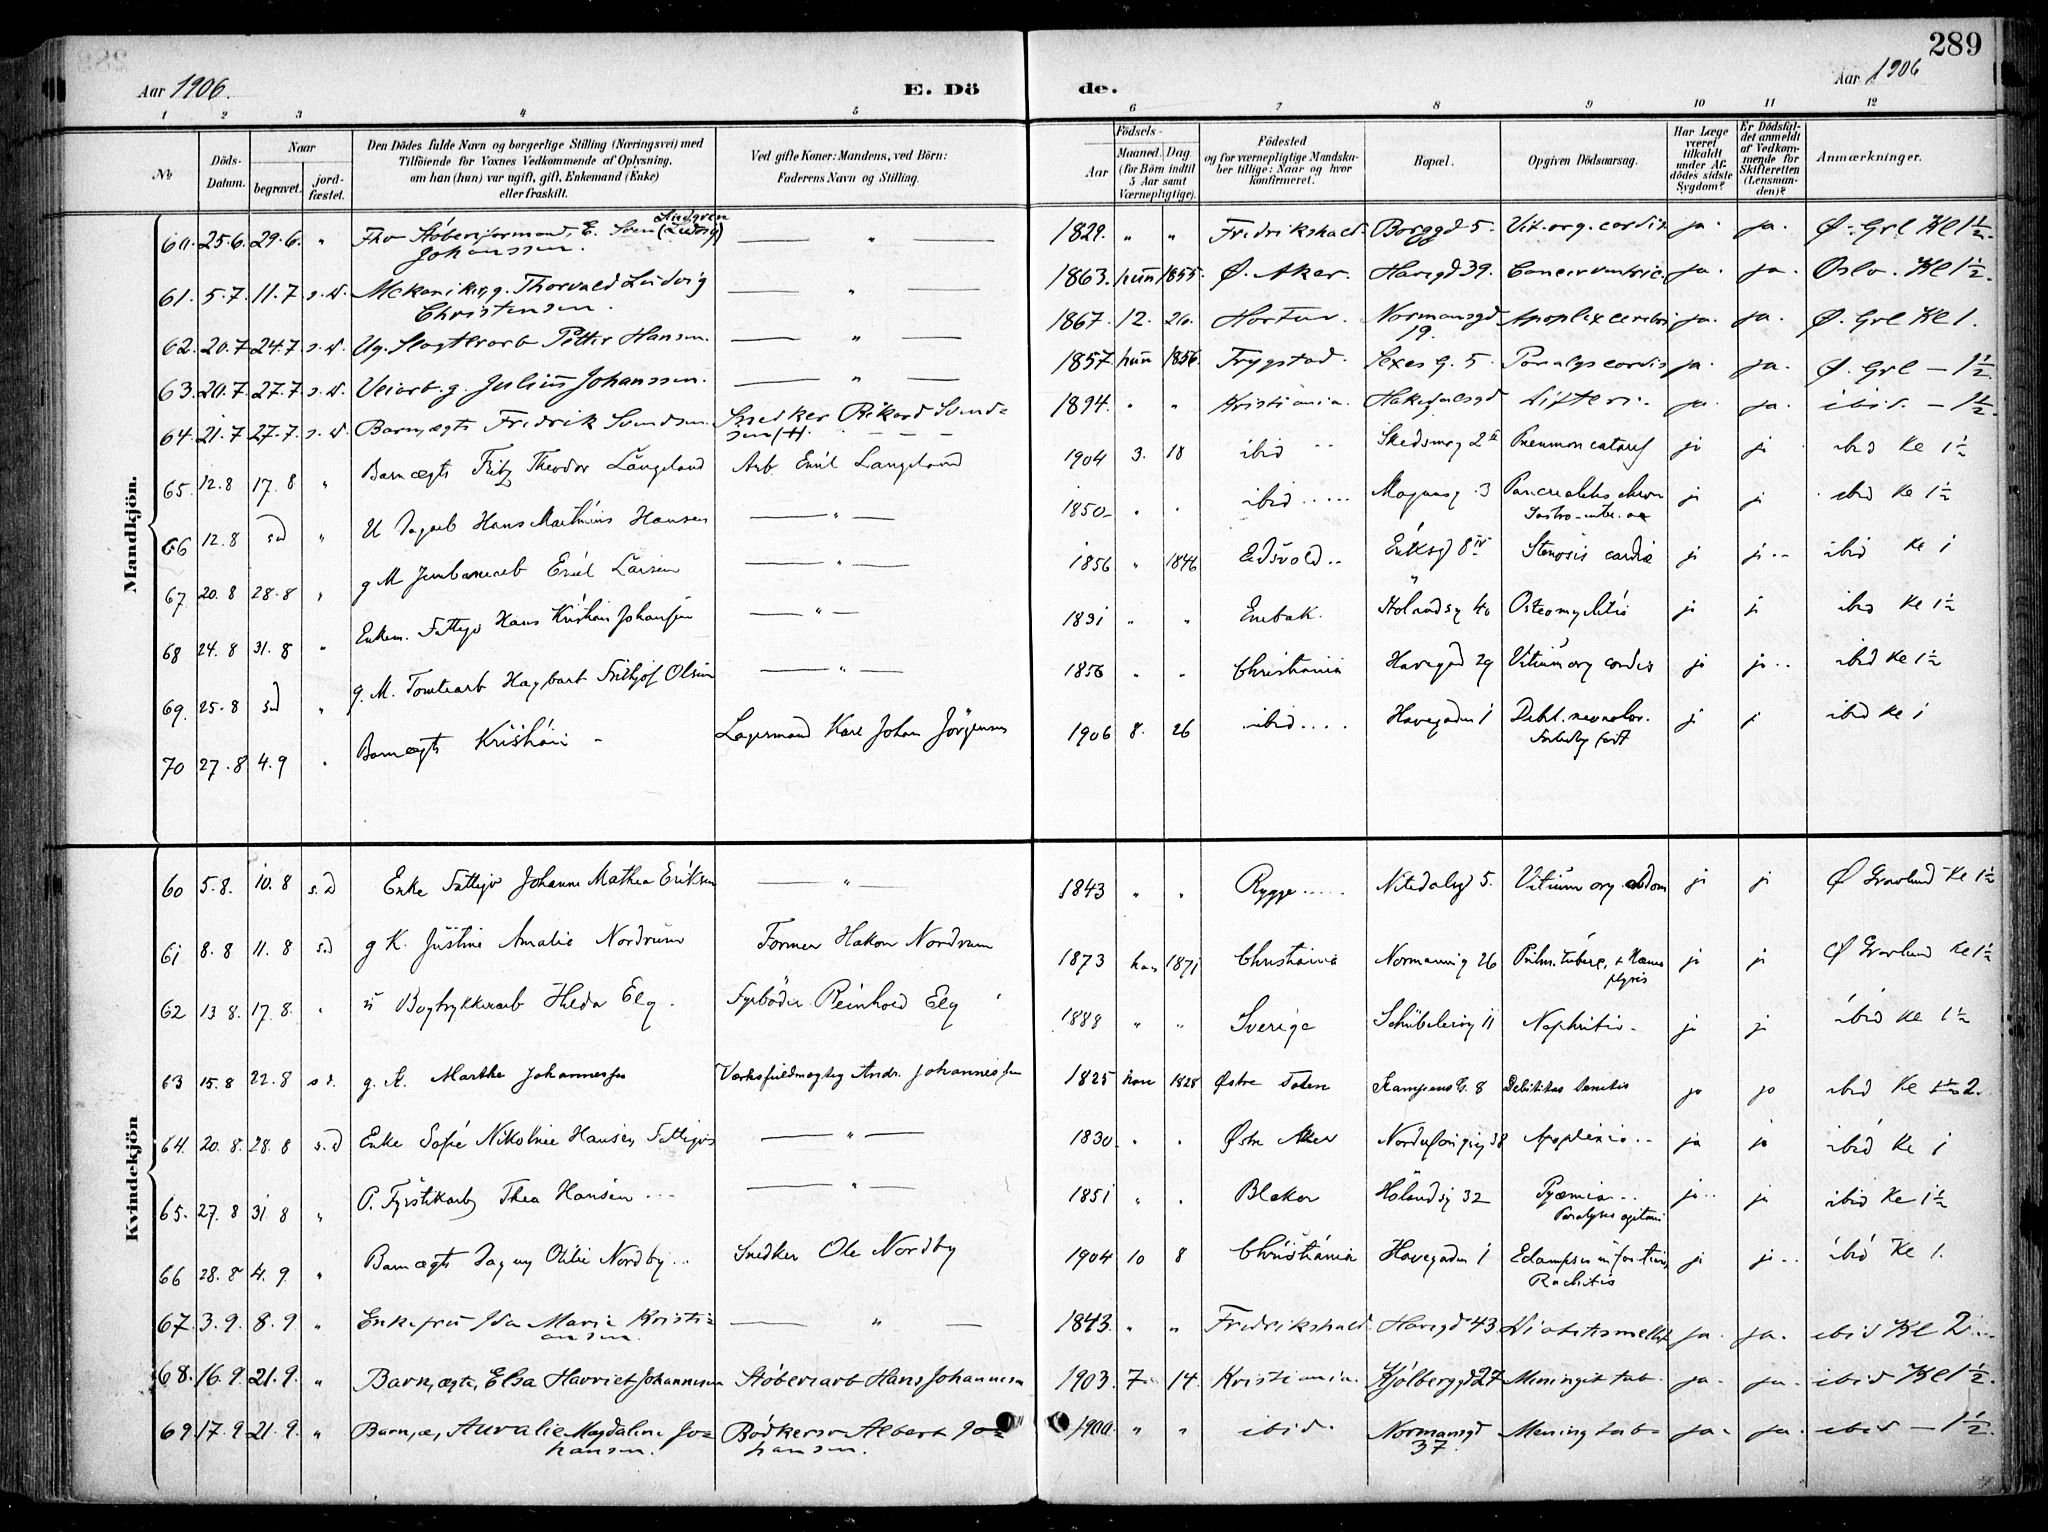 289
Aar 1906.
E. Döde.
Aar 1906
1 2 3 4 5 6 7 8 9 10 11 12
No
Döds-Datum.
Naar
begravet.
jord-fæstet.
Den Dödes fulde Navn og borgerlige Stilling (Næringsvei) med
Tilföiende for Voxnes Vedkommende af Oplysning,
om han (hun) var ugift, gift, Enkemand (Enke)
eller fraskilt.
Ved gifte Koner: Mandens, ved Börn:
Faderens Navn og Stilling.
Födsels-
Aar
Maaned. Dag
(for Börn indtil
5 Aar samt
Værnepligtige).
Födested
og for værnepligtige Mandska-
ber tillige: Naar og hvor
konfirmeret.
Bopæl.
Opgiven Dödsaarsag.
Har Læge
været
tilkaldt
under Af-
dödes sidste
Sygdom?
Er Dödsfal-
det anmeldt
af Vedkom-
mende for
Skifteretten
(Lensman-
den)?
Anmærkninger.
Mandkjön.
60. 25.6. 29.6. " Fhv Støberiformand, E. Sven (Ludvig) Lindgren — " — 1829. " " Fredrikshald. Borggd 5. Vit. org. cordis ja. ja. Ø. Grl Kl 1½.
Johanssen.
61. 5.7. 11.7 s.d. Mekaniker, g. Thorvald Ludvig — " — 1863. 1855. Ø. Aker. Havegd 39. Cancer ventric. ja. ja. Oslo. Kl 1½.
Christensen.
62. 20.7 24.7 s.d. Ug. Slagterarb Petter Hansen. — " — 1867. 12. 26. Horten. Normansgd 19. Apoplex cerebri ja. ja. Ø. Grl Kl 1.
63. 20.7. 27.7 s.d. Veiarb. g. Julius Johanssen. — " — 1857. 1856. Trygstad. 5. Paralys cordis ja. ja. Ø. Grl — 1½.
64. 21.7 27.7. s.d. Barn, ægte Fredrik Svendsen. Snedker Rikard Svend-
sen 1894. " " Kristiania. Difteri. ja. ja. ibid. — 1½.
65. 12.8 17.8 " Barn ægte Fritz Theodor Langeland Arb. Emil Langeland 1904 3. 18 ibid Skedsmog 2 II Pneumon catarrh ja ja ibid Kl 1½
66 12.8 sd " U Dagarb Hans Mathias Hansen — " — 1850 " " ibid 3 ja ja ibid Kl 1½
67 20.8 28.8 " g M Jernbanearb Emil Larsen — " — 1856 " 1846 Eidsvold Eriksgd 8 IV Stenosis cardia ja ja ibid Kl 1
68 24.8 31.8 " Enkem. Fattigv Hans Kristian Johansen — " — 1831 " " Enebak. Hölandsg 40 Osteomyelitis ja ja ibid Kl 1½
69. 25.8 sd " g. M. Tomtearb Hagbart Frithjof Olsen — " — 1856 " " Christiania Havegd 29 Vitium org cordis ja ja ibid Kl 1½
70 27.8 4.9 " Barn ægte Kristian Lagermand Karl Johan Jörgensen 1906 8. 26 ibid Havegaden 1 Debil. neonator. ja ja ibid Kl 1
Kvindekjön
60 5.8. 10.8 s.d Enke Fattigv Johanne Mathea Eriksen — " — 1843 " " Rygge Nitedalsgd 5. Vitium org ja ja Ø Gravlund Kl 1½
61 8.8 11.8 s.d g K. Justine Amalie Nordrum Former Hakon Nordrum 1873 han 1871 Christiania Normannsg 26 Pulm. tuberc. + Hæmo-
ptysis ja ja Ø Gravlund Kl 1½
62 13.8. 17.8. " u Bogtrykkerarb Hilda Elg. Fyrböder Reinhold Elg 1888 " " Sverige Schübelersg 11 Nephritis ja ja ibid Kl 1½
63 15.8 22.8 s.d. g. K. Marthe Johannessen Andr. Johannessen 1825 han 1828 Østre Toten Kampens G. 8 Debilitas senilis ja ja ibid Kl 2.
64. 20.8. 28.8 s.d Enke Sofie Nikoline Hansen, Fattigv — " — 1830 " " Østre Aker 38 Apoplexia ja ja ibid Kl 1
65. 27.8 31.8 " P. Fyrstikarb Thea Hansen — " — 1851 " " Blaker Hölandsg 32 Pyæmia
Paralysis agitans ja ja ibid Kl 1½
66 28.8 4.9. " Barn ægte Dagny Otilie Nordby Snedker Ole Nordby 1904 10 8 Christiania Havegaden 1 Eclampsia infantum
Rachitis ja ja ibid Kl 1.
67. 3.9. 8.9. " Enkefru Ida Marie Kristi-
ansen. — " — 1843. " " Fredrikshald. Havegd 43 Diabetes mellit ja. ja. ibid Kl 2
68. 16.9. 21.9. " Barn, ægte, Elsa Harriet Johannesen Støberiarb Hans Johannesen 1903. 7 14. Kristiania. Kjølberggd 27 Meningit tub. ja. ja. ibid Kl 1½.
69. 17.9. 21.9. " Barn, æ, Auralie Magdalene Jo-
hansen. Bødkersv Albert Jo-
hansen. 1900. " " ibid. Normansgd
37. Mening tub. ja. ja. ibid — 1½.